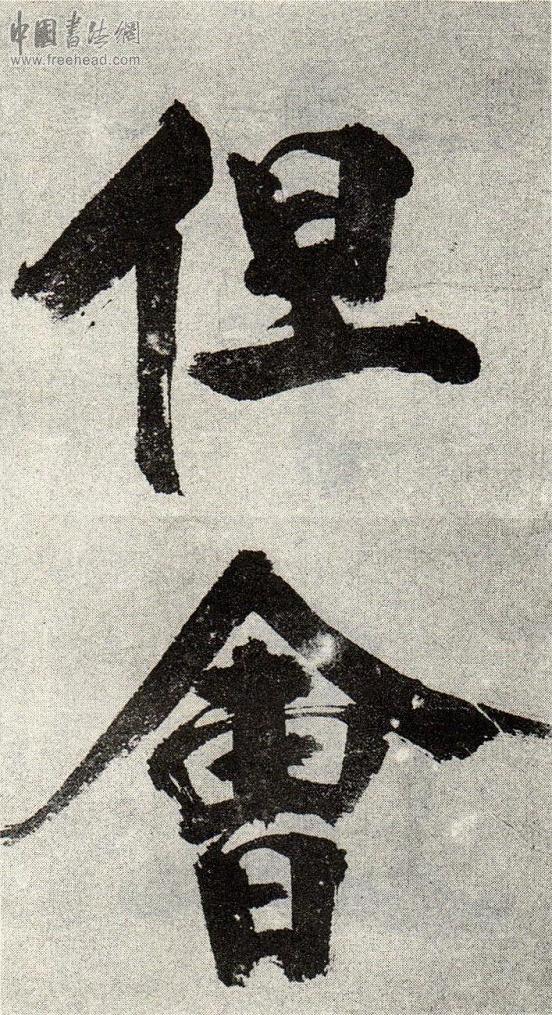 中國書法網
www.freehead.com
但
會